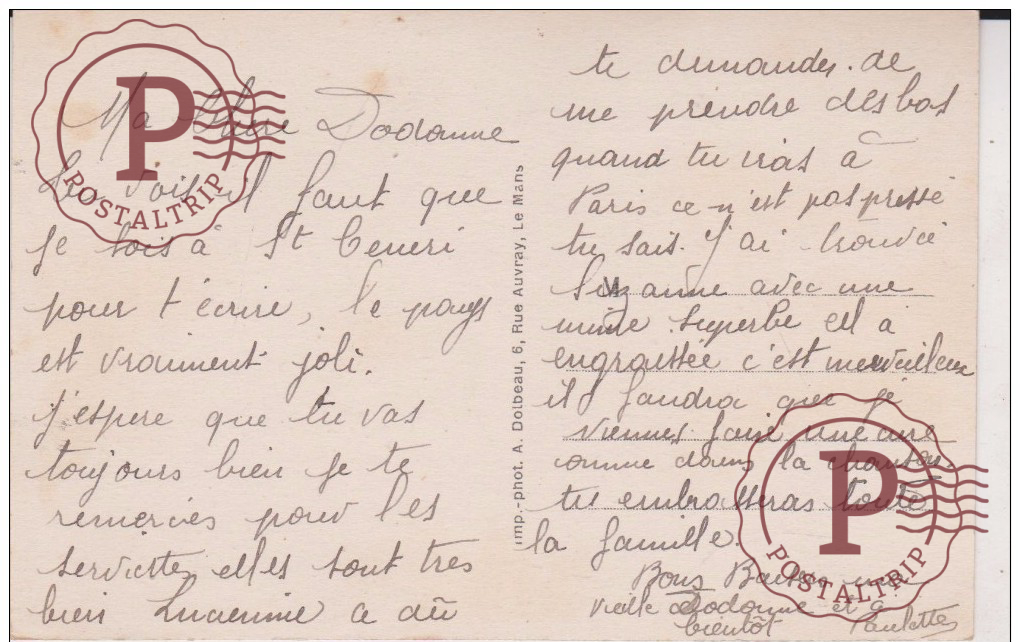 Ma chère Dodonne
Tu vois il faut que
je sois à St Ceneri
pour t'écrire, le pays
est vraiment joli.
j'espere que tu vas
toujours bien je te
remercies pour les
serviettes elles sont tres
bien Lucienne a dû
te demander de
me prendre des bas
quand tu iras à
Paris ce n'est pas pressé
tu sais. J'ai trouvé
Suzanne avec une
mine superbe ell a
engraissée c'est merveilleux
il faudra que je
viennes faire une cure
comme dans la chanson.
tu embrasseras toute
la famille.
Bons Baisers
vieille Dodonne et à
bientôt Paulette
Imp.-phot. A. Dolbeau, 6, Rue Auvray, Le Mans
P
POSTALTRIP
P
POSTALTRIP